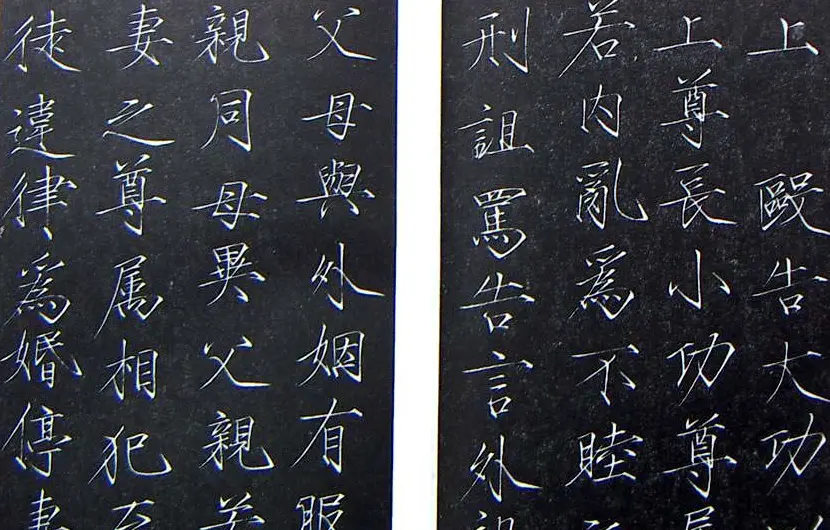 上 毆告大功
上尊長小功尊属
若内亂爲不睦
刑詛罵告言外祖
父母與外姻有服
親同母異父親若
妻之尊属相犯至
徒違律爲婚停妻